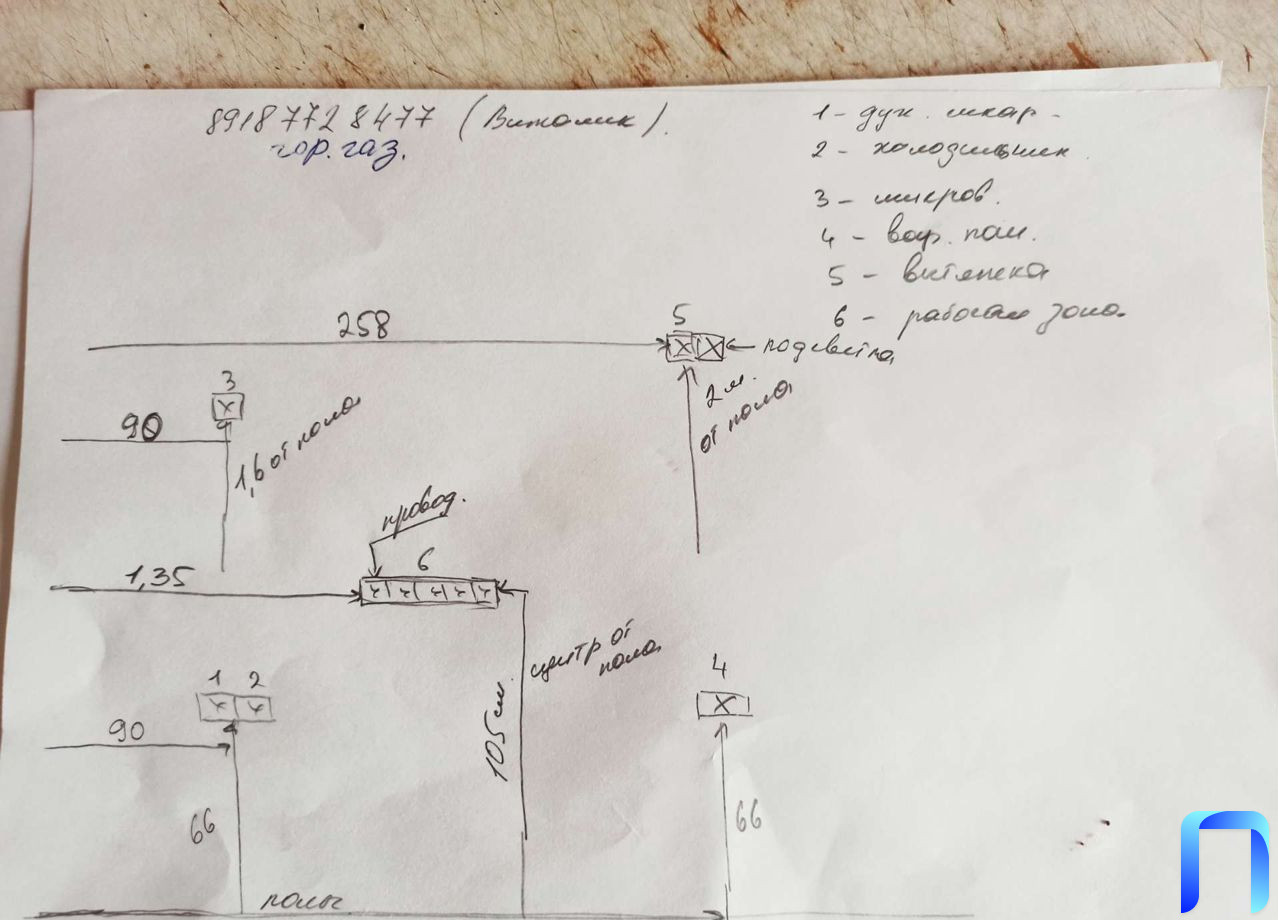 89187728477 (Виталик).
гор. газ.
1 - дух. шкаф -
2 - холодильник
3 - микров.
4 - вар. пан.
5 - витяжка
6 - рабочая зона.
258
5
подсветка
2 м.
от пола
3
90
1,6 от пола
провод.
6
1,35
центр от
пола
105 см.
1 2
90
66
4
66
полы